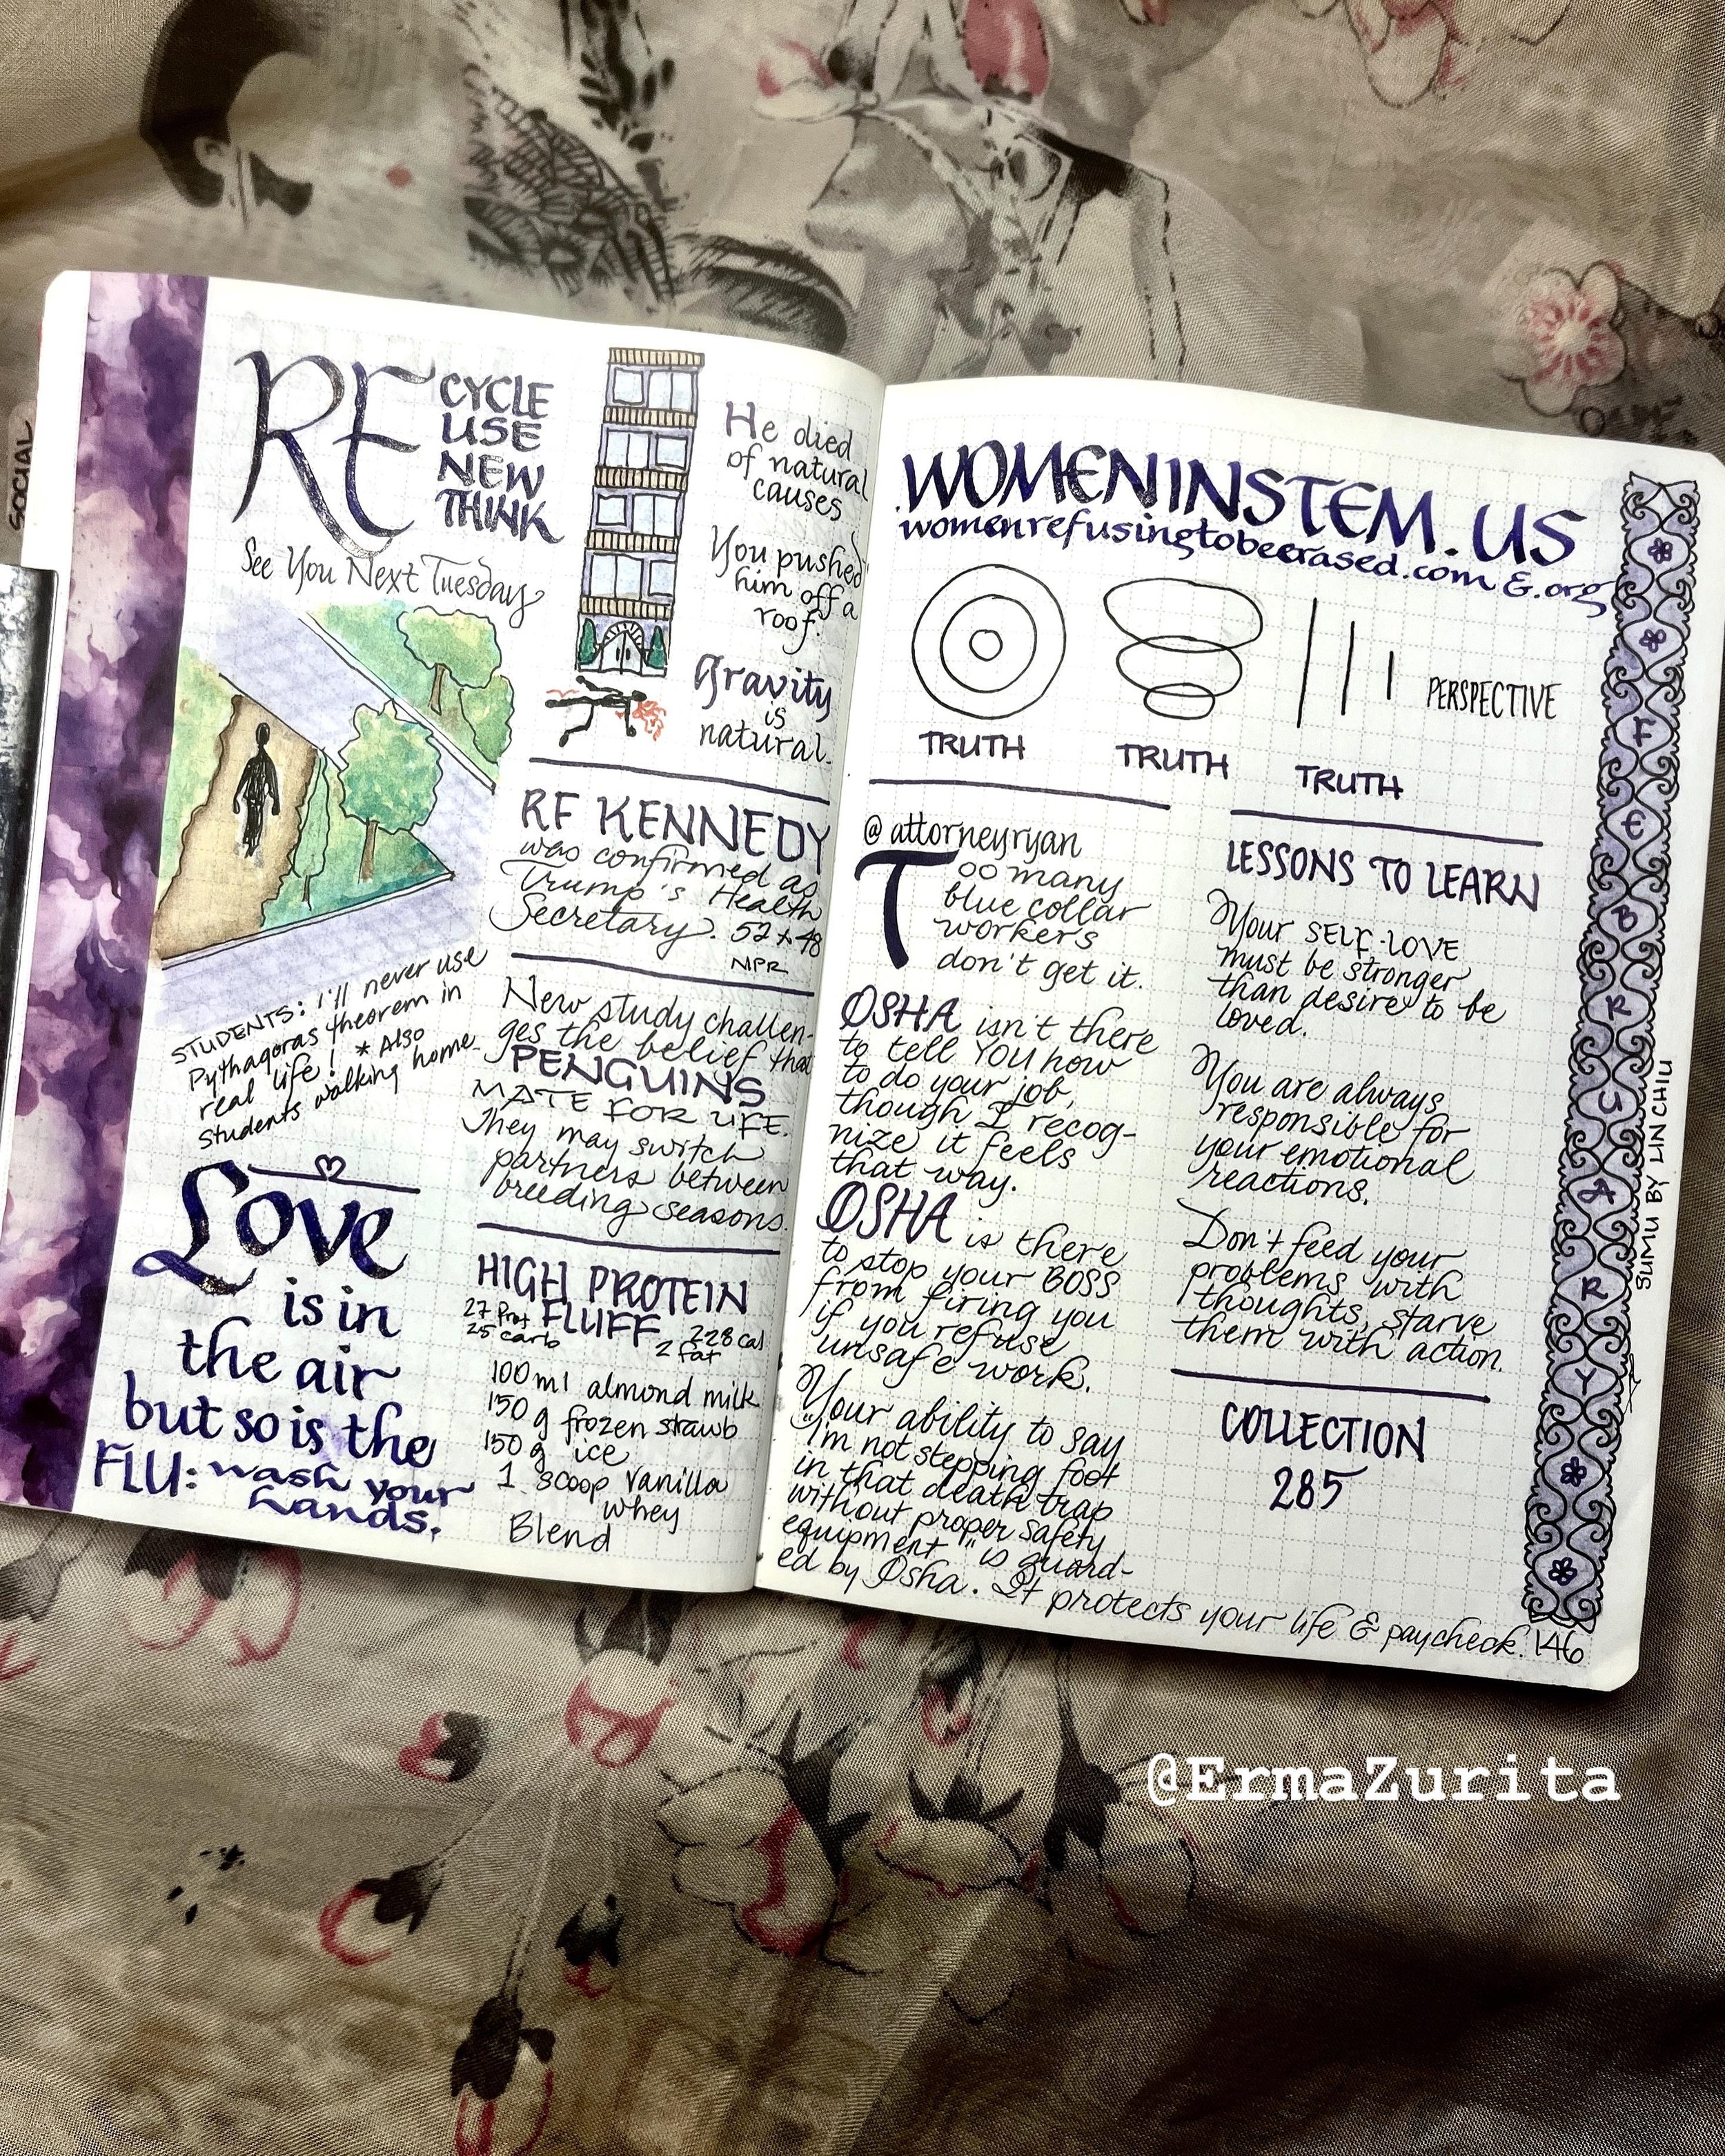 SOCIAL
RE
CYCLE
USE
NEW
THINK
See You Next Tuesday
STUDENTS: I'll never use
Pythagoras theorem in
real life! * Also
students walking home.
Love
is in
the air
but so is the
FLU: wash your
hands.
He died
of natural
causes
You pushed
him off a
roof.
Gravity
is
natural.
RF KENNEDY
was confirmed as
Trump's Health
Secretary. 52 to 48
NPR
New study challen-
ges the belief that
PENGUINS
MATE FOR LIFE.
They may switch
partners between
breeding seasons.
HIGH PROTEIN
FLUFF
27 Prot
25 carb
228 cal
2 fat
100 ml almond milk
150 g frozen strawb
150 g ice
1 scoop vanilla
whey
Blend
WOMENINSTEM.US
womenrefusingtobeerased.com & .org
TRUTH
TRUTH
TRUTH
PERSPECTIVE
@attorneyryan
Too many
blue collar
workers
don't get it.
OSHA isn't there
to tell YOU how
to do your job,
though I recog-
nize it feels
that way.
OSHA is there
to stop your BOSS
from firing you
if you refuse
unsafe work.
Your ability to say
"I'm not stepping foot
in that death trap
without proper safety
equipment" is guard-
ed by Osha. It protects your life & paycheck.
LESSONS TO LEARN
Your SELF-LOVE
must be stronger
than desire to be
loved.
You are always
responsible for
your emotional
reactions.
Don't feed your
problems with
thoughts, starve
them with action.
COLLECTION
285
FEBRUARY
SUMU BY LIN CHIU
146
@ErmaZurita